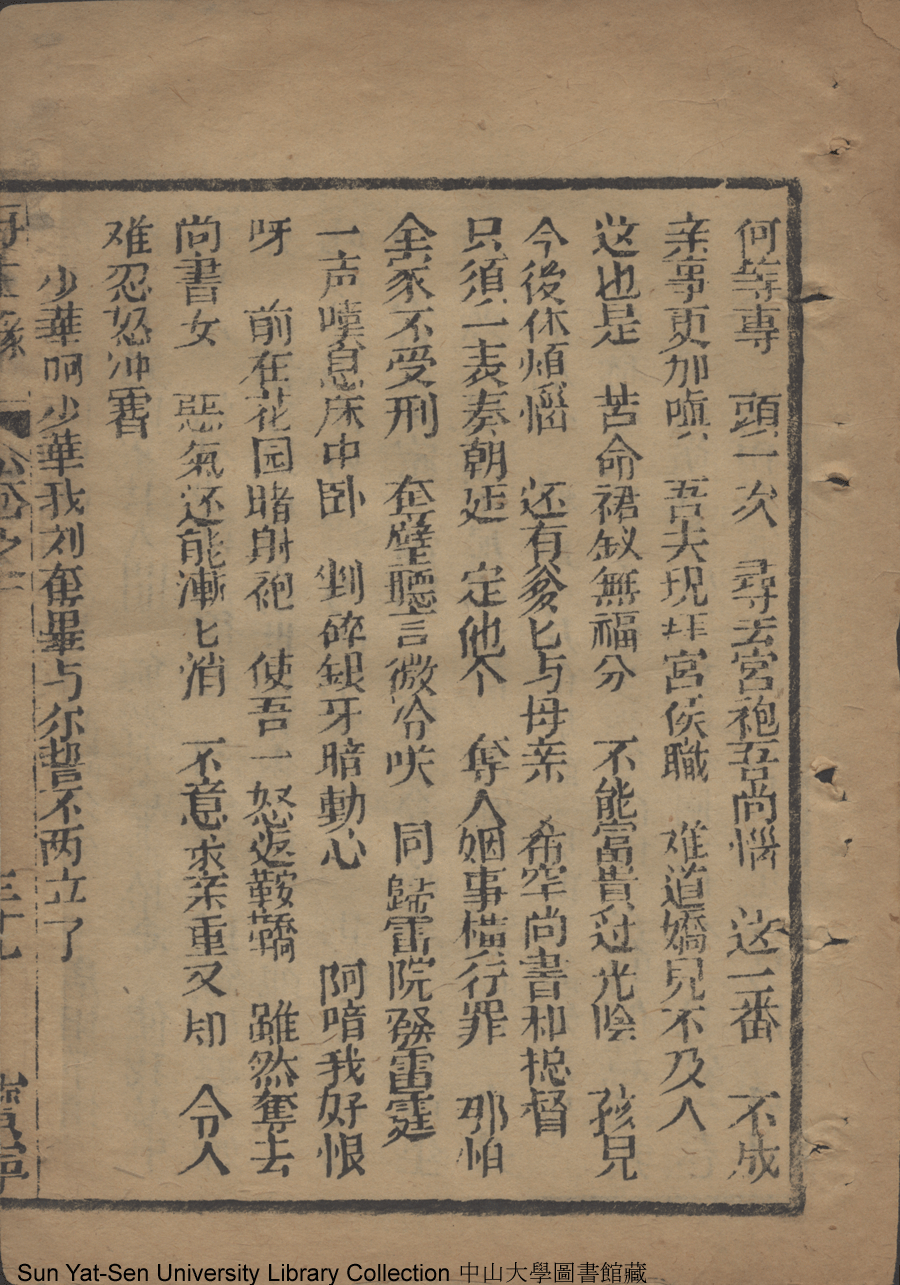 何等専　頭一次　尋去宮袍吾尚惱　这二番　不成
亲事更加嗔　吾夫現　宮侯職　难道嬌兒不及人
这也是　苦命裙釵無福分　不能富貴过光陰　孩兒
今後休煩惱　还有爹匕与母亲　希罕尚書和捴督
只須一表奏朝廷　定他个　奪人姻事橫行罪　那怕
全家不受刑　奎璧聽言微冷咲　同歸雷院發雷霆
一声嘆息床中卧　剉碎銀牙暗動心　阿唷我好恨
呀　前在花园睹射袍　使吾一怒返鞍鞽　雖然奪去
尚書女　惡氣还能漸匕消　不意求亲重又却　令人
难忍怒冲霄
少華呵少華我刘奎璧与尔誓不两立了
再生緣　卷之　三十九　寶寧
Sun Yat-Sen University Library Collection 中山大學圖書館藏